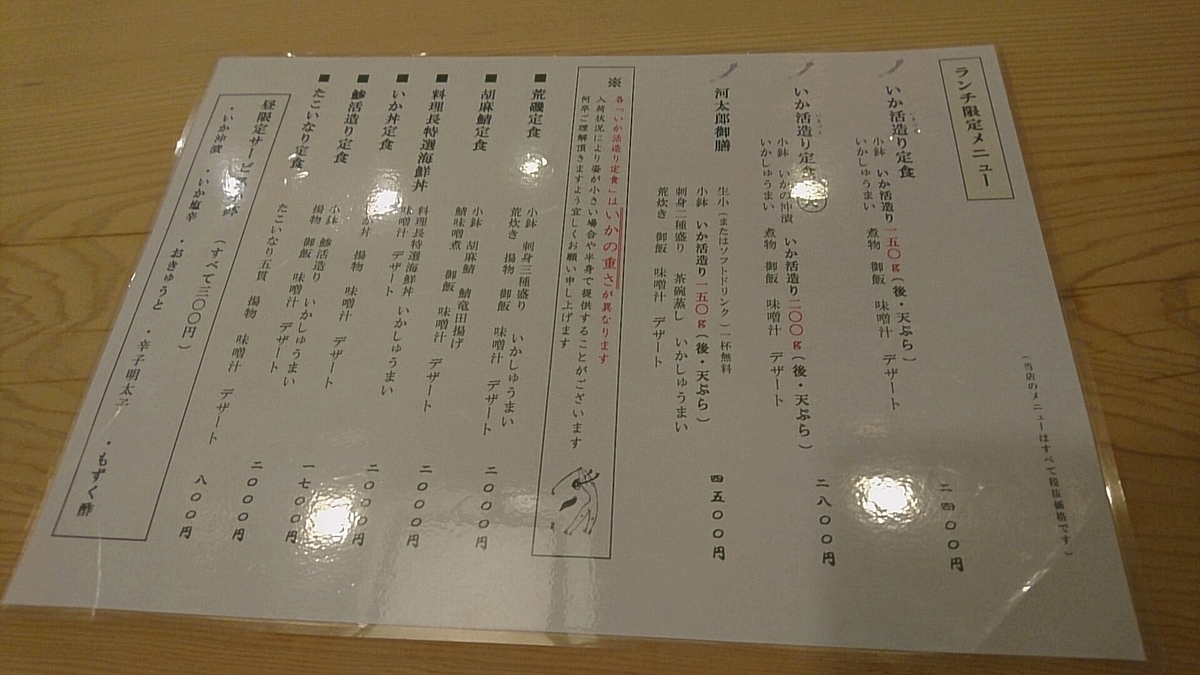 ランチ限定メニュー
(当店のメニューはすべて税抜価格です)
いか活造り定食
小鉢 いか活造り一五〇g(後・天ぷら)
いかしゅうまい 煮物 御飯 味噌汁 デザート
二四〇〇円
いか活造り定食
小鉢 いかの沖漬 いか活造り二〇〇g(後・天ぷら)
いかしゅうまい 煮物 御飯 味噌汁 デザート
二八〇〇円
河太郎御膳
生小(またはソフトドリンク)一杯無料
小鉢 いか活造り一五〇g(後・天ぷら)
刺身二種盛り 茶碗蒸し いかしゅうまい
荒炊き 御飯 味噌汁 デザート
四五〇〇円
※ 各「いか活造り定食」はいかの重さが異なります
入荷状況により姿が小さい場合や半身で提供することがございます
何卒ご理解頂きますよう宜しくお願い申し上げます
■荒磯定食
小鉢 刺身三種盛り いかしゅうまい
荒炊き 揚物 御飯 味噌汁 デザート
二〇〇〇円
■胡麻鯖定食
小鉢 胡麻鯖 鯖竜田揚げ
鯖味噌煮 御飯 味噌汁 デザート
二〇〇〇円
■料理長特選海鮮丼
料理長特選海鮮丼 いかしゅうまい
味噌汁 デザート
二〇〇〇円
■いか丼定食
いか丼 揚物 味噌汁 デザート
一七〇〇円
■鯵活造り定食
小鉢 鯵活造り いかしゅうまい
揚物 御飯 味噌汁 デザート
二〇〇〇円
■たこいなり定食
たこいなり五貫 揚物 味噌汁 デザート
八〇〇円
昼限定サービス小鉢 (すべて三〇〇円)
・いか沖漬 ・いか塩辛 ・おきゅうと ・辛子明太子 ・もずく酢